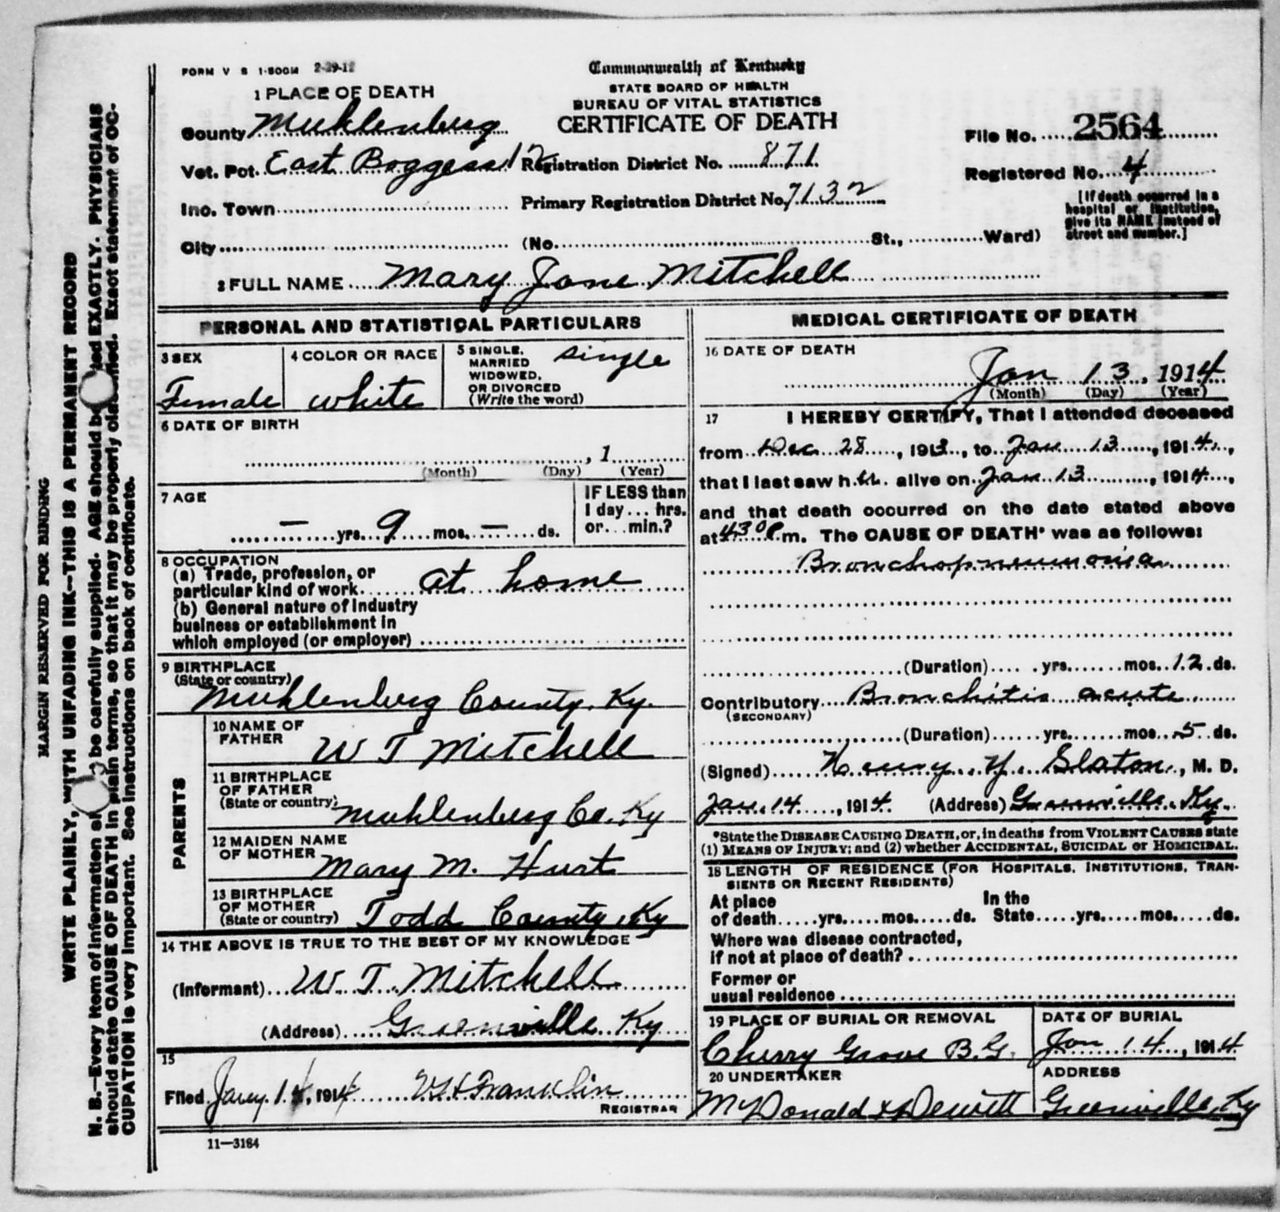 FORM V S 1-500M 2-29-12
Commonwealth of Kentucky
STATE BOARD OF HEALTH
BUREAU OF VITAL STATISTICS
CERTIFICATE OF DEATH
1 PLACE OF DEATH
County Muhlenberg
Vot. Pct. East Boggess 12 Registration District No. 871
Inc. Town Primary Registration District No. 7132
City (No. St., Ward)
File No. 2564
Registered No. 4
[If death occurred in a
hospital or institution,
give its NAME instead of
street and number.]
2 FULL NAME Mary Jane Mitchell
PERSONAL AND STATISTICAL PARTICULARS
3 SEX
Female
4 COLOR OR RACE
white
5 SINGLE,
MARRIED
WIDOWED,
OR DIVORCED
(Write the word)
single
6 DATE OF BIRTH
, 1
(Month) (Day) (Year)
7 AGE
— yrs. 9 mos. — ds.
IF LESS than
1 day ... hrs.
or ... min.?
8 OCCUPATION
(a) Trade, profession, or
particular kind of work at home
(b) General nature of industry
business or establishment in
which employed (or employer)
9 BIRTHPLACE
(State or country)
Muhlenberg County, Ky.
PARENTS
10 NAME OF
FATHER
W T Mitchell
11 BIRTHPLACE
OF FATHER
(State or country)
Muhlenberg Co. Ky
12 MAIDEN NAME
OF MOTHER
Mary M. Hurt
13 BIRTHPLACE
OF MOTHER
(State or country)
Todd County, Ky
14 THE ABOVE IS TRUE TO THE BEST OF MY KNOWLEDGE
(Informant) W. T. Mitchell
(Address) Greenville Ky
15
Filed Jany 14, 1914 Franklin
REGISTRAR
11—3184
MEDICAL CERTIFICATE OF DEATH
16 DATE OF DEATH
Jan 13, 1914
(Month) (Day) (Year)
17 I HEREBY CERTIFY, That I attended deceased
from Dec 28, 1913, to Jan 13, 1914,
that I last saw her alive on Jan 13, 1914,
and that death occurred on the date stated above
at 430 P m. The CAUSE OF DEATH* was as follows:
Bronchopneumonia
(Duration) yrs. mos. 12 ds.
Contributory Bronchitis acute
(SECONDARY)
(Duration) yrs. mos. 5 ds.
(Signed) Henry Y. Slaton, M. D.
Jan. 14, 1914 (Address) Greenville, Ky.
*State the DISEASE CAUSING DEATH, or, in deaths from VIOLENT CAUSES state
(1) MEANS OF INJURY; and (2) whether ACCIDENTAL, SUICIDAL or HOMICIDAL.
18 LENGTH OF RESIDENCE (FOR HOSPITALS, INSTITUTIONS, TRAN-
SIENTS OR RECENT RESIDENTS)
At place In the
of death yrs. mos. ds. State yrs. mos. ds.
Where was disease contracted,
if not at place of death?
Former or
usual residence
19 PLACE OF BURIAL OR REMOVAL
Cherry Grove B.G.
DATE OF BURIAL
Jan 14, 1914
20 UNDERTAKER
McDonald & Dewitt
ADDRESS
Greenville, Ky
MARGIN RESERVED FOR BINDING
WRITE PLAINLY, WITH UNFADING INK—THIS IS A PERMANENT RECORD
N. B.—Every item of information be carefully supplied. AGE should be EXACTLY. PHYSICIANS
should state CAUSE OF DEATH in plain terms, so that it may be properly Exact statement of OC-
CUPATION is very important. See instructions on back of certificate.